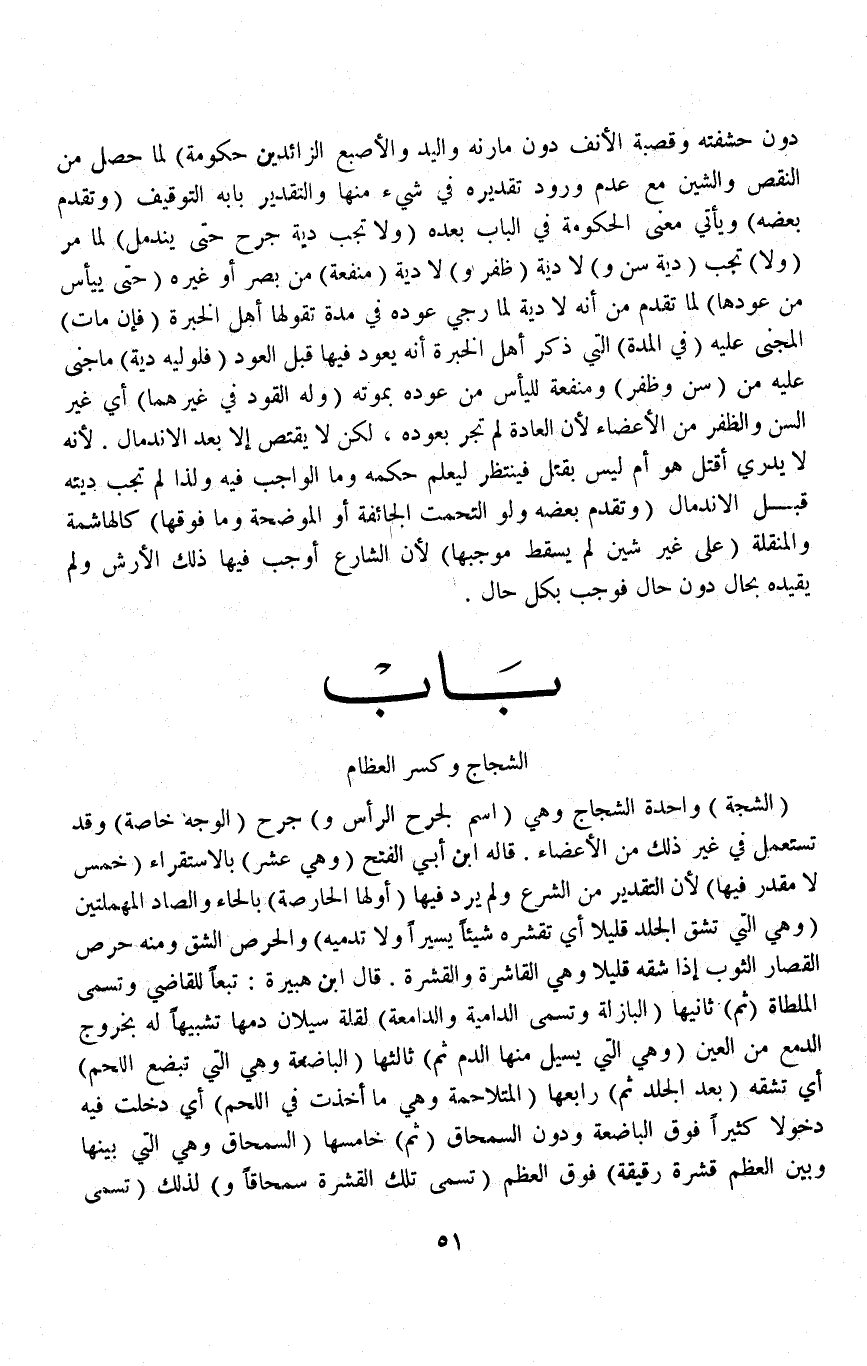 دون حشفته وقصبة الأنف دون مارنه واليد والأصبع الزائدين حكومة) لما حصل من
النقص والشين مع عدم ورود تقديره في شيء منها والتقدير بابه التوقيف (وتقدم
بعضه) ويأتي معنى الحكومة في الباب بعده (ولا تجب دية جرح حتى يندمل) لما مر
(ولا) تجب (دية سن و) لا دية (ظفر و) لا دية (منفعة) من بصر أو غيره (حتى ييأس
من عودها) لما تقدم من أنه لا دية لما رجي عوده في مدة تقولها أهل الخبرة (فإن مات)
المجنى عليه (في المدة) التي ذكر أهل الخبرة أنه يعود فيها قبل العود (فلوليه دية) ماجنى
عليه من (سن وظفر) ومنفعة لليأس من عوده بموته (وله القود في غيرهما) أي غير
السن والظفر من الأعضاء لأن العادة لم تجر بعوده ، لكن لا يقتص إلا بعد الاندمال . لأنه
لا يدري أقتل هو أم ليس بقتل فينتظر ليعلم حكمه وما الواجب فيه ولذا لم تجب ديته
قبــل الاندمال (وتقدم بعضه ولو التحمت الجائفة أو الموضحة وما فوقها) كالهاشمة
والمنقلة (على غير شين لم يسقط موجبها) لأن الشارع أوجب فيها ذلك الأرش ولم
يقيده بحال دون حال فوجب بكل حال .
بَابْ
الشجاج وكسر العظام
(الشجة) واحدة الشجاج وهي (اسم لجرح الرأس و) جرح (الوجه خاصة) وقد
تستعمل في غير ذلك من الأعضاء . قاله ابن أبي الفتح (وهي عشر) بالاستقراء (خمس
لا مقدر فيها) لأن التقدير من الشرع ولم يرد فيها (أولها الحارصة) بالحاء والصاد المهملتين
(وهي التي تشق الجلد قليلا أي تقشره شيئاً يسيراً ولا تدميه) والحرص الشق ومنه حرص
القصار الثوب إذا شقه قليلا وهي القاشرة والقشرة . قال ابن هبيرة : تبعاً للقاضي وتسمى
الملطاة (ثم) ثانيها (البازلة وتسمى الدامية والدامعة) لقلة سيلان دمها تشبيهاً له بخروج
الدمع من العين (وهي التي يسيل منها الدم ثم) ثالثها (الباضعة وهي التي تبضع اللحم)
أي تشقه (بعد الجلد ثم) رابعها (المتلاحمة وهي ما أخذت في اللحم) أي دخلت فيه
دخولا كثيراً فوق الباضعة ودون السمحاق (ثم) خامسها (السمحاق وهي التي بينها
وبين العظم قشرة رقيقة) فوق العظم (تسمى تلك القشرة سمحاقاً و) لذلك (تسمى
٥١